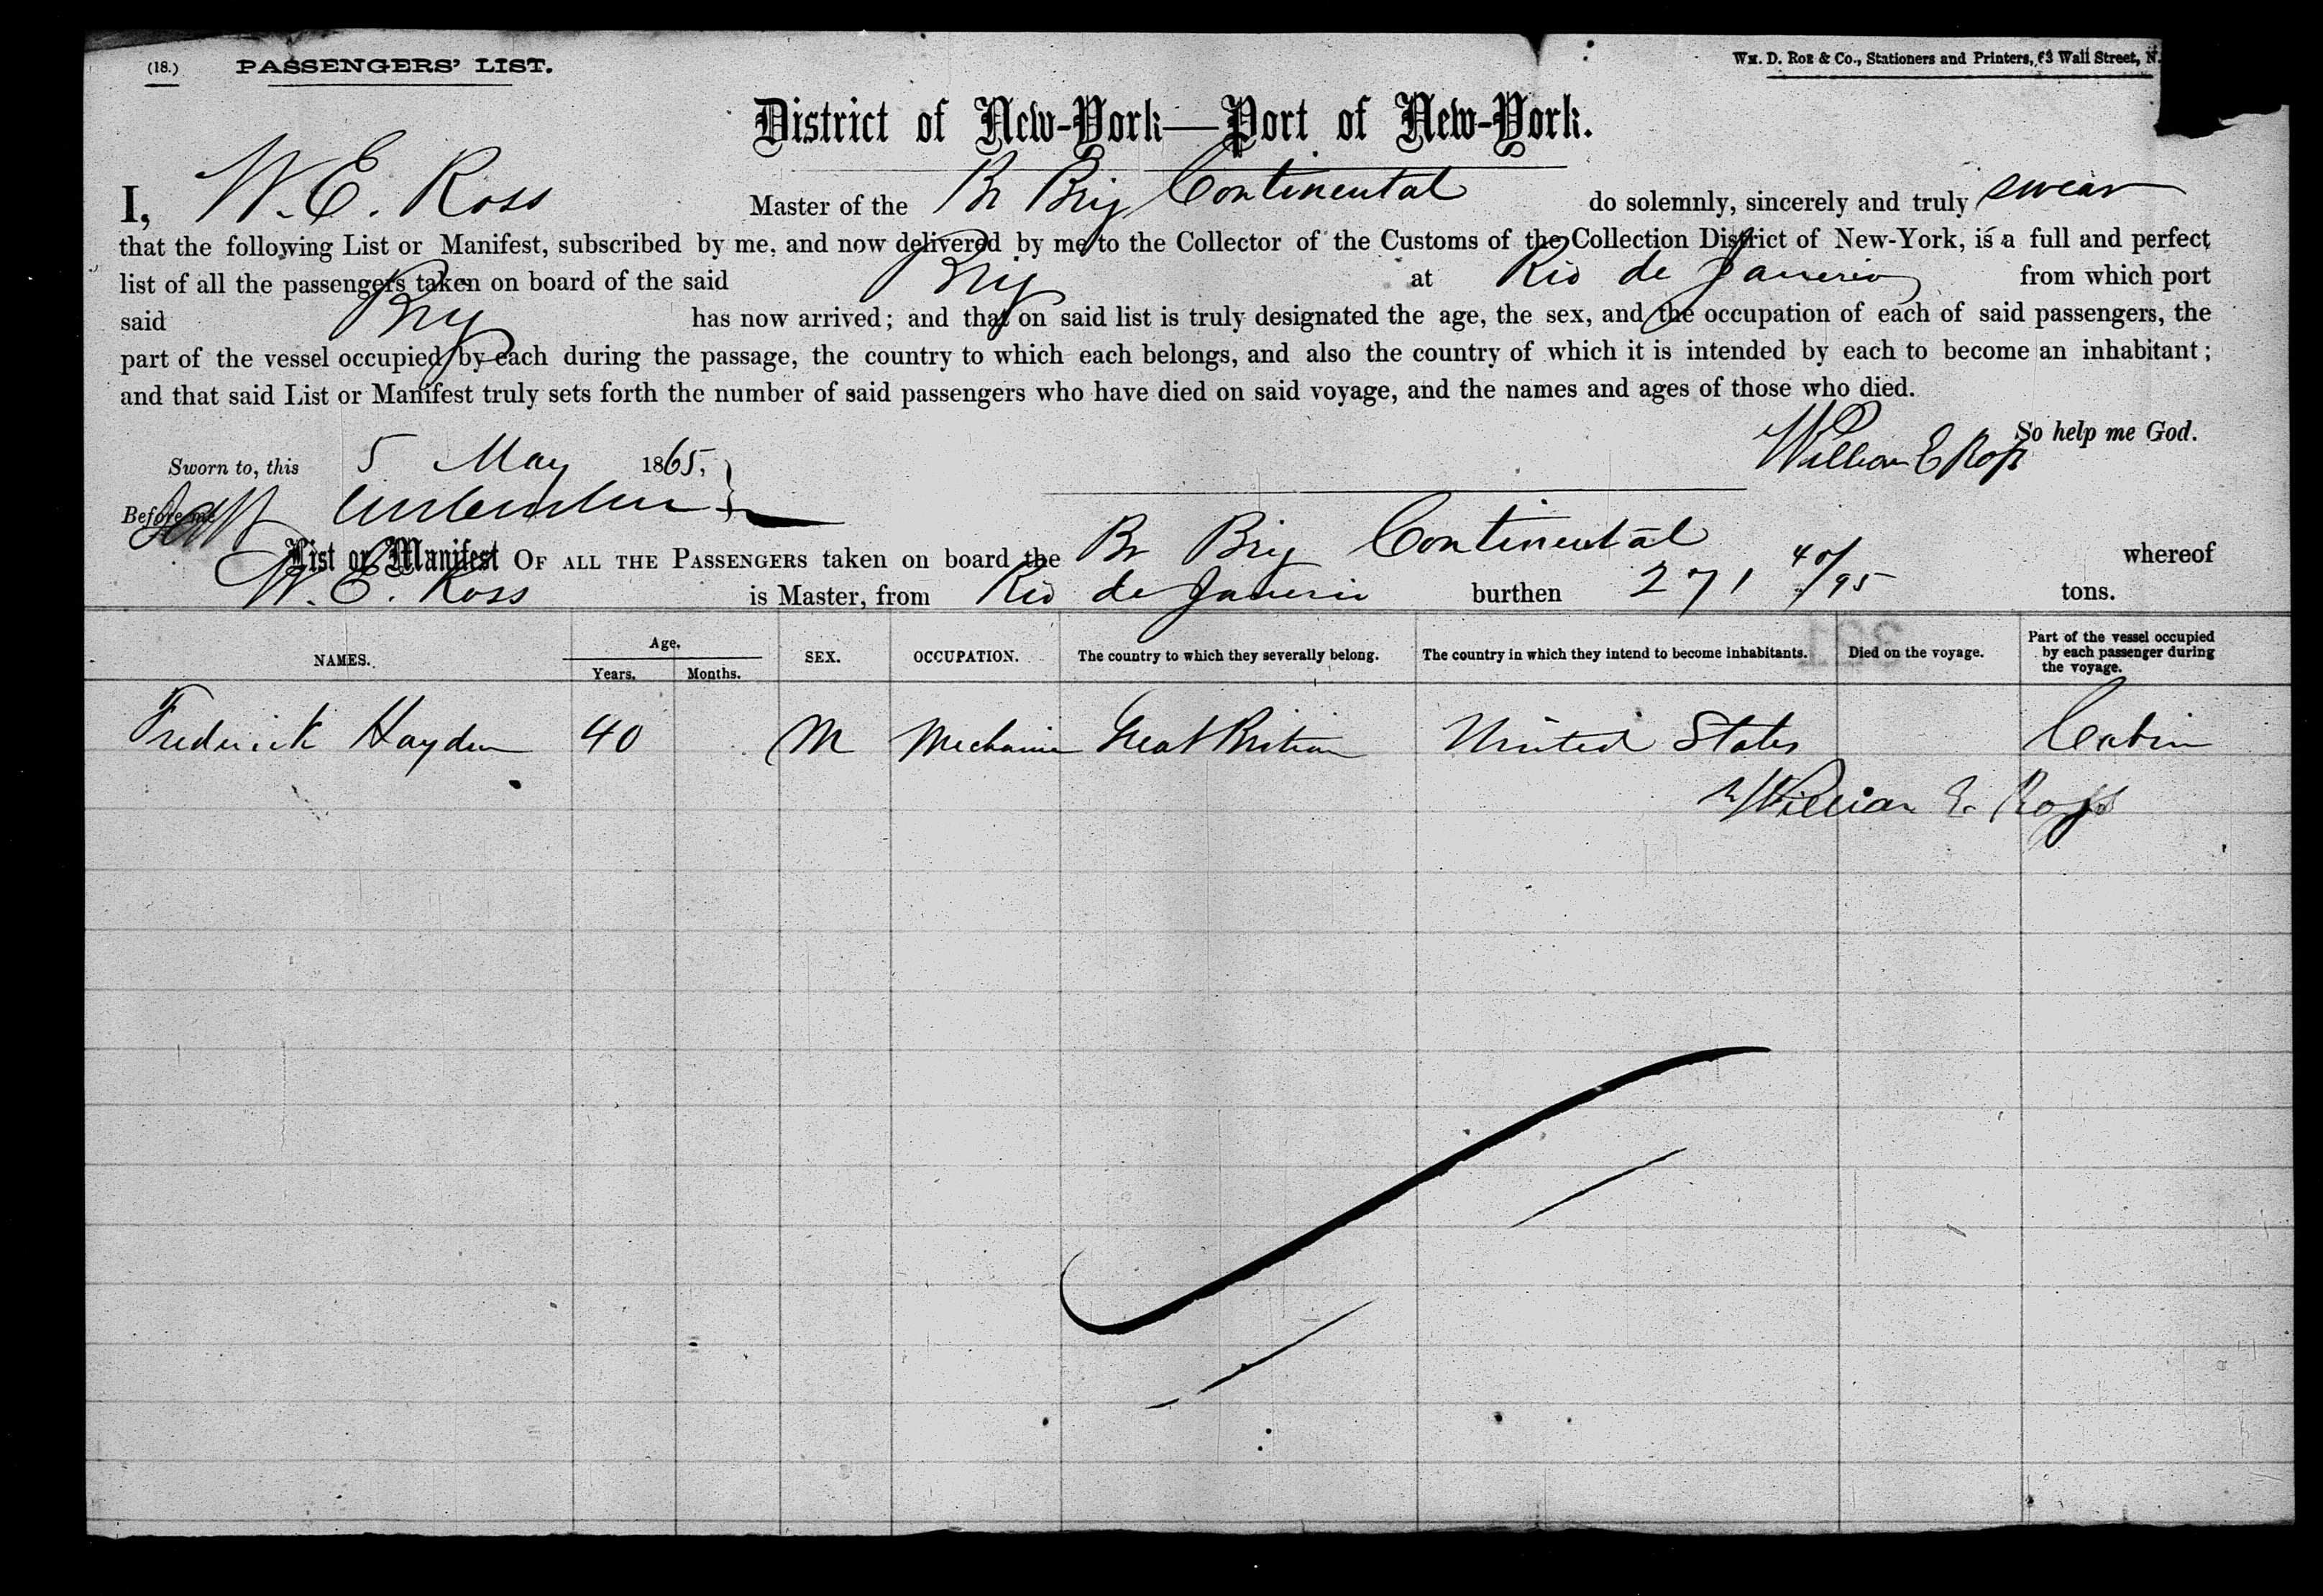 (18.) PASSENGERS' LIST.
WM. D. ROE & Co., Stationers and Printers, 63 Wall Street, N.
District of New-York—Port of New-York.
I, W. E. Ross Master of the Br Brig Continental do solemnly, sincerely and truly swear
that the following List or Manifest, subscribed by me, and now delivered by me to the Collector of the Customs of the Collection District of New-York, is a full and perfect
list of all the passengers taken on board of the said Brig at Rio de Janerio from which port
said Brig has now arrived; and that on said list is truly designated the age, the sex, and the occupation of each of said passengers, the
part of the vessel occupied by each during the passage, the country to which each belongs, and also the country of which it is intended by each to become an inhabitant;
and that said List or Manifest truly sets forth the number of said passengers who have died on said voyage, and the names and ages of those who died.
So help me God.
Sworn to, this 5 May 1865, William E Ross
Before me
List or Manifest OF ALL THE PASSENGERS taken on board the Br Brig Continental whereof
W. E. Ross is Master, from Rio de Janerio burthen 271 40/95 tons.
NAMES. Age. Years. Months. SEX. OCCUPATION. The country to which they severally belong. The country in which they intend to become inhabitants. Died on the voyage. Part of the vessel occupied by each passenger during the voyage.
Frederick Hayden 40 M Mechanic Great Britian United States Cabin
William E. Ross